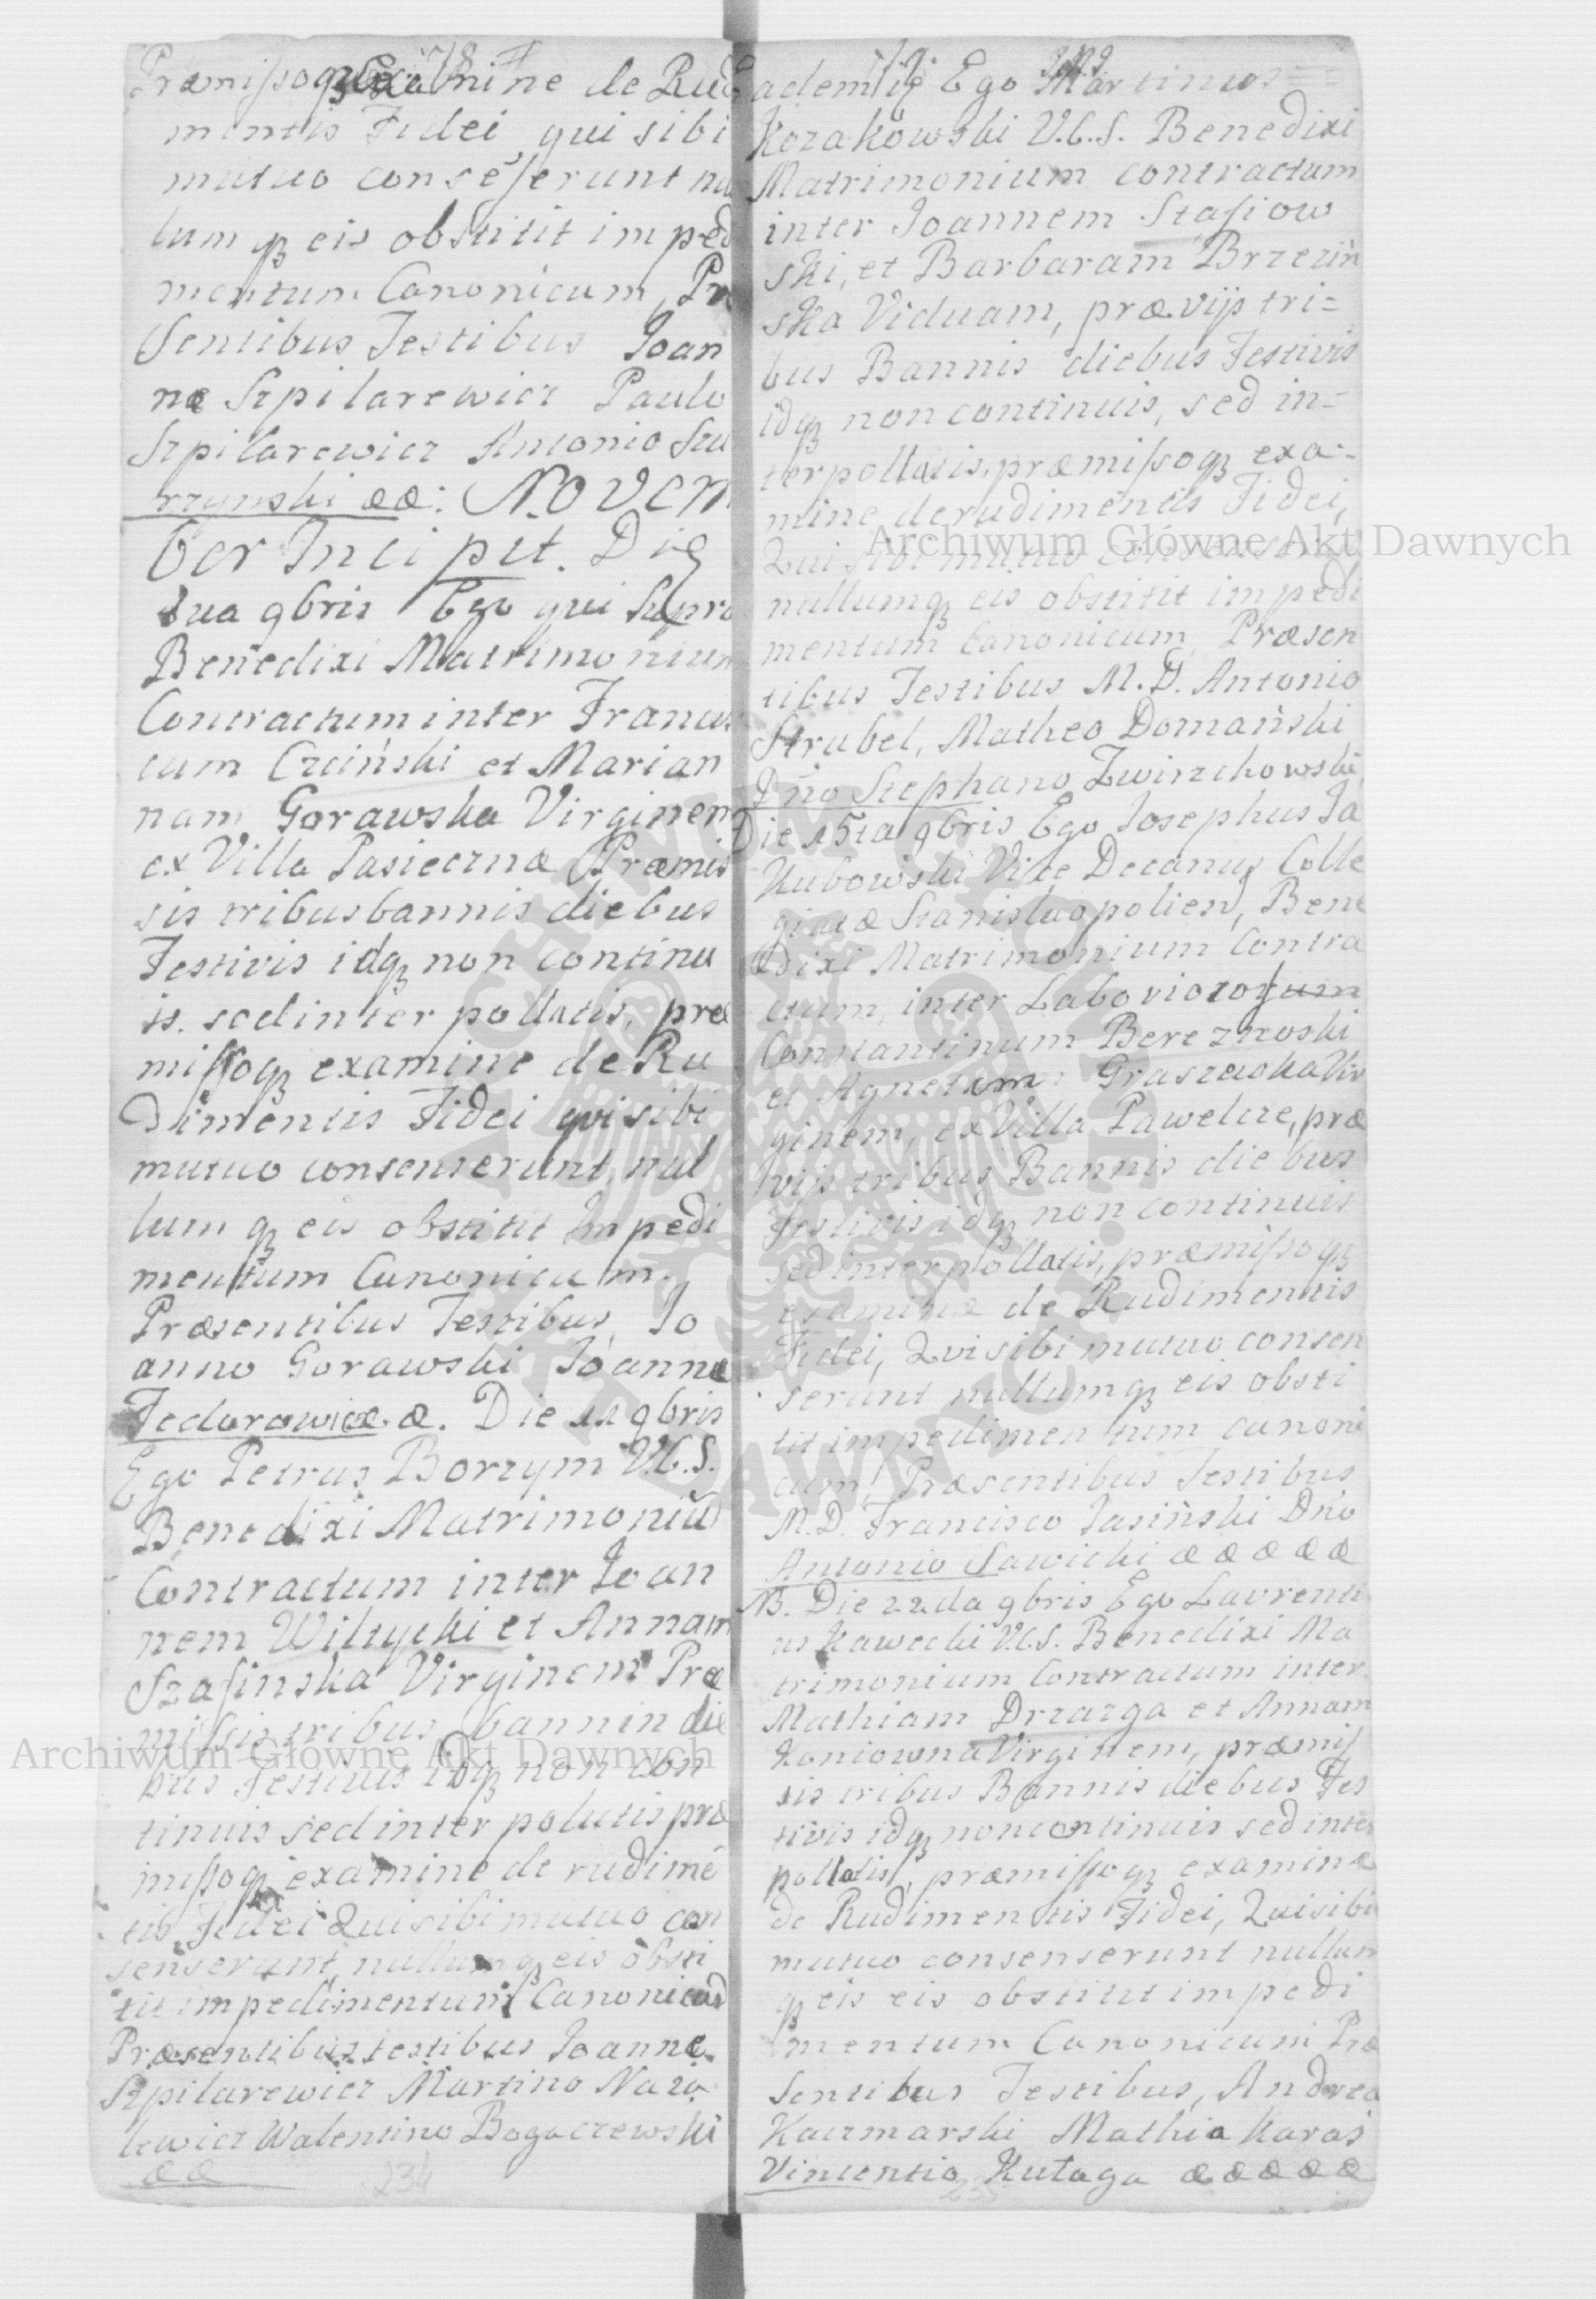 Præmissoq3 Examine de Rud
mentis Fidei, qui sibi
mutuo conseserunt nu
lum q3 eis obstitit imped
mentum Canonicum, Præ
sentibus Testibus Joan
ne Szpilarewicz Paulo
Szpilarewicz Antonio Szu
rzynski &&: NOVEM
ber Incipit. Die
2ua 9bris Ego qui Supra
Benedixi Matrimonium
Contractum inter Francis
cum Czciński et Marian
nam Gorawska Virginem
ex Villa Pasieczna Præmis
sis tribus bannis diebus
Festivis idq3 non continu
is. sed interpollatis, præ
missoq3 examine de Ru
dimentis Fidei qui sibi
mutuo consenserunt, nul
lum q3 eis obstitit Impedi
mentum Canonicum.
Præsentibus Testibus, Jo
anne Gorawski Joanne
Fedorowicz &. Die 11 9bris
Ego Petrus Borzym V.C.S.
Benedixi Matrimoniu
Contractum inter Joan
nem Wiltycki et Annam
Szasinska Virginem Præ
missis tribus bannin die
bus Festivis idq3 non con
tinuis sed inter polutis præ
missoq3 examine de rudimē
tis Fidei Qui sibi mutuo con
senserunt, nullumq3 eis obsti
tit impedimentum Canonicum
Præsentibus testibus Joanne
Szpilarewicz Martino Nazo
lewicz Walentino Bogaczewski
&&
234
Eadem die Ego Martinus
Kozakowski V.C.S. Benedixi
Matrimonium contractum
inter Joannem Stasiow
ski, et Barbaram Brzezin
ska Viduam, prævijs tri=
bus Bannis diebus Festivis
idq3 non continuis, sed in=
terpollatis, præmissoq3 exa=
mine de rudimentis Fidei,
Qui sibi mutuo consenserunt
nullumq3 eis obstitit impedi
mentum Canonicum, Præsen
tibus Testibus M.D. Antonio
Strubel, Matheo Domański
Dno Stephano Zwirzchowski
Die 15ta 9bris Ego Josephus Ja
kubowski Vice Decanus Colle
giatæ Stanisluopolien, Bene
dixi Matrimonium Contra
ctum, inter Laboriosorum
Constantinum Bereznoski
et Agnetam Graszewska Vir
ginem, ex Villa Pawelcze, præ
vijs tribus Bannis diebus
Festivis idq3 non continuis
sed interpollatis, præmissoq3
examine de Rudimentis
Fidei, Qui sibi mutuo consen
serunt nullumq3 eis obsti
tit impedimentum canoni
cum, Præsentibus Testibus
M.D. Francisco Jasiński Dno
Antonio Sawicki & & & & &
NB. Die 22da 9bris Ego Laurenti
us Kawecki V.C.S. Benedixi Ma
trimonium Contractum inter
Mathiam Drzazga et Annam
Koniowna Virginem, præmis
sis tribus Bannis diebus Fes
tivis idq3 non continuis sed inter
pollatis, præmissoq3 examine
de Rudimentis Fidei, Qui sibi
mutuo consenserunt nullum
q3 eis eis obstitit impedi
mentum Canonicum Præ
sentibus Testibus, Andrea
Kaczmarski Mathia Karaś
Vincentio Kutaga & & & & &
Archiwum Główne Akt Dawnych
Archiwum Główne Akt Dawnych